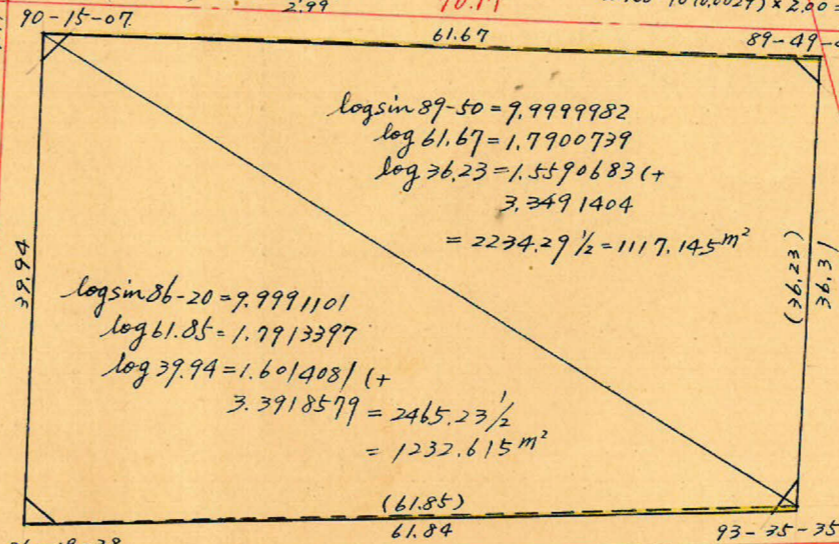 2.99
90-15-07
61.67
logsin 89-50=9.9999982
log 61.67=1.7900739
log 36.23=1.5590683(+
3.3491404
= 2234.29 1/2=1117.145m²
39.94
(36.23)
36.31
logsin 86-20=9.9991101
log 61.85=1.7913397
log 39.94=1.6014081(+
3.3918579 = 2465.23 1/2
= 1232.615m²
(61.85)
61.84
93-35-35